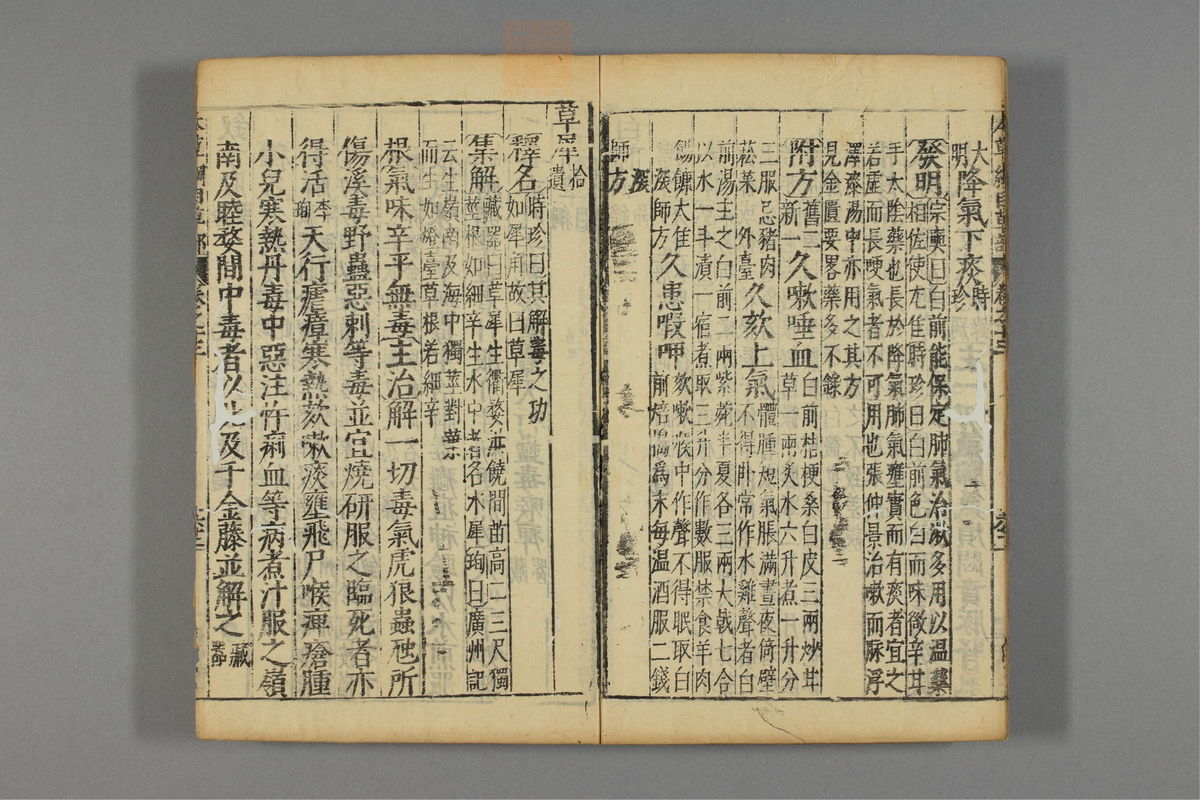 大明降氣下痰時珍
發明宗奭曰白前能保定肺氣治嗽多用以溫藥
相佐使尤佳時珍曰白前色白而味微辛甘
手太陰藥也長於降氣肺氣壅實而有痰者宜之
若虛而長哽氣者不可用也張仲景治嗽而脉浮
澤漆湯中亦用之其方
見金匱要畧藥多不錄
附方舊 新一久嗽唾血白前桔梗桑白皮三兩炒甘
草一兩炙水六升煮一升分
三服忌豬肉
菘菜 外臺久欬上氣體腫短氣脹滿晝夜倚壁
不得卧常作水雞聲者白
前湯主之白前二兩紫菀半夏各三兩大戟七合
以水一斗漬一宿煮取三升分作數服禁食羊肉
餳餹大佳
深師方久患暇呷欬嗽喉中作聲不得眠取白
前焙擣爲末每温酒服二錢
深
師方
草犀拾遺
釋名時珍曰其解毒之功
如犀角故曰草犀
集解藏器曰草犀生衢婺洪饒間苗高二三尺獨
莖根如細辛生水中者名水犀珣曰廣州記
云生嶺南及海中獨莖對葉
而生如燈臺草根若細辛
根氣味辛平無毒主治解一切毒氣虎狼蟲虺所
傷溪毒野蠱惡刺等毒並宜燒研服之臨死者亦
得活李珣天行瘧瘴寒熱欬嗽痰壅飛尸喉痺瘡腫
小兒寒熱丹毒中惡注忤痢血等病煮汁服之嶺
南及睦婺間中毒者以此及千金藤並解之藏器